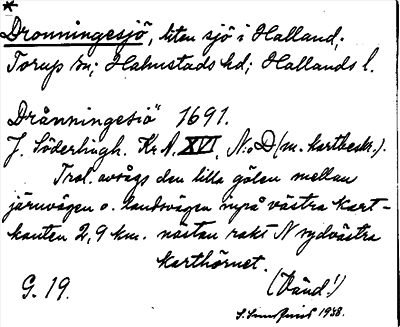 *
Dronningesjö, liten sjö i Halland;
Torup sn; Halmstads hd; Hallands l.
Drånningesiö" 1691.
J. Söderlingh. Kr. A. XVI, N:o D (m. kartbeskr.).
Trol. avsågs den lilla gölen mellan
järnvägen o. landsvägen inpå västra kart-
kanten 2,9 km. nästan rakt N sydvästra
karthörnet.
G. 19.
(Vänd!)
1938.